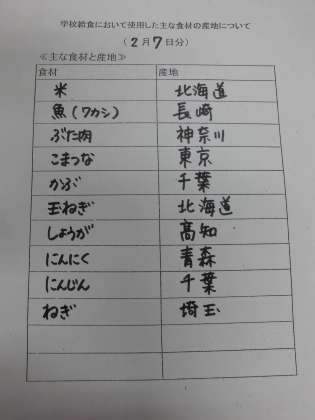 学校給食において使用した主な食材の産地について
(2月7日分)
≪主な食材と産地≫
食材 産地
米 北海道
魚(ワカシ) 長崎
ぶた肉 神奈川
こまつな 東京
かぶ 千葉
玉ねぎ 北海道
しょうが 高知
にんにく 青森
にんじん 千葉
ねぎ 埼玉